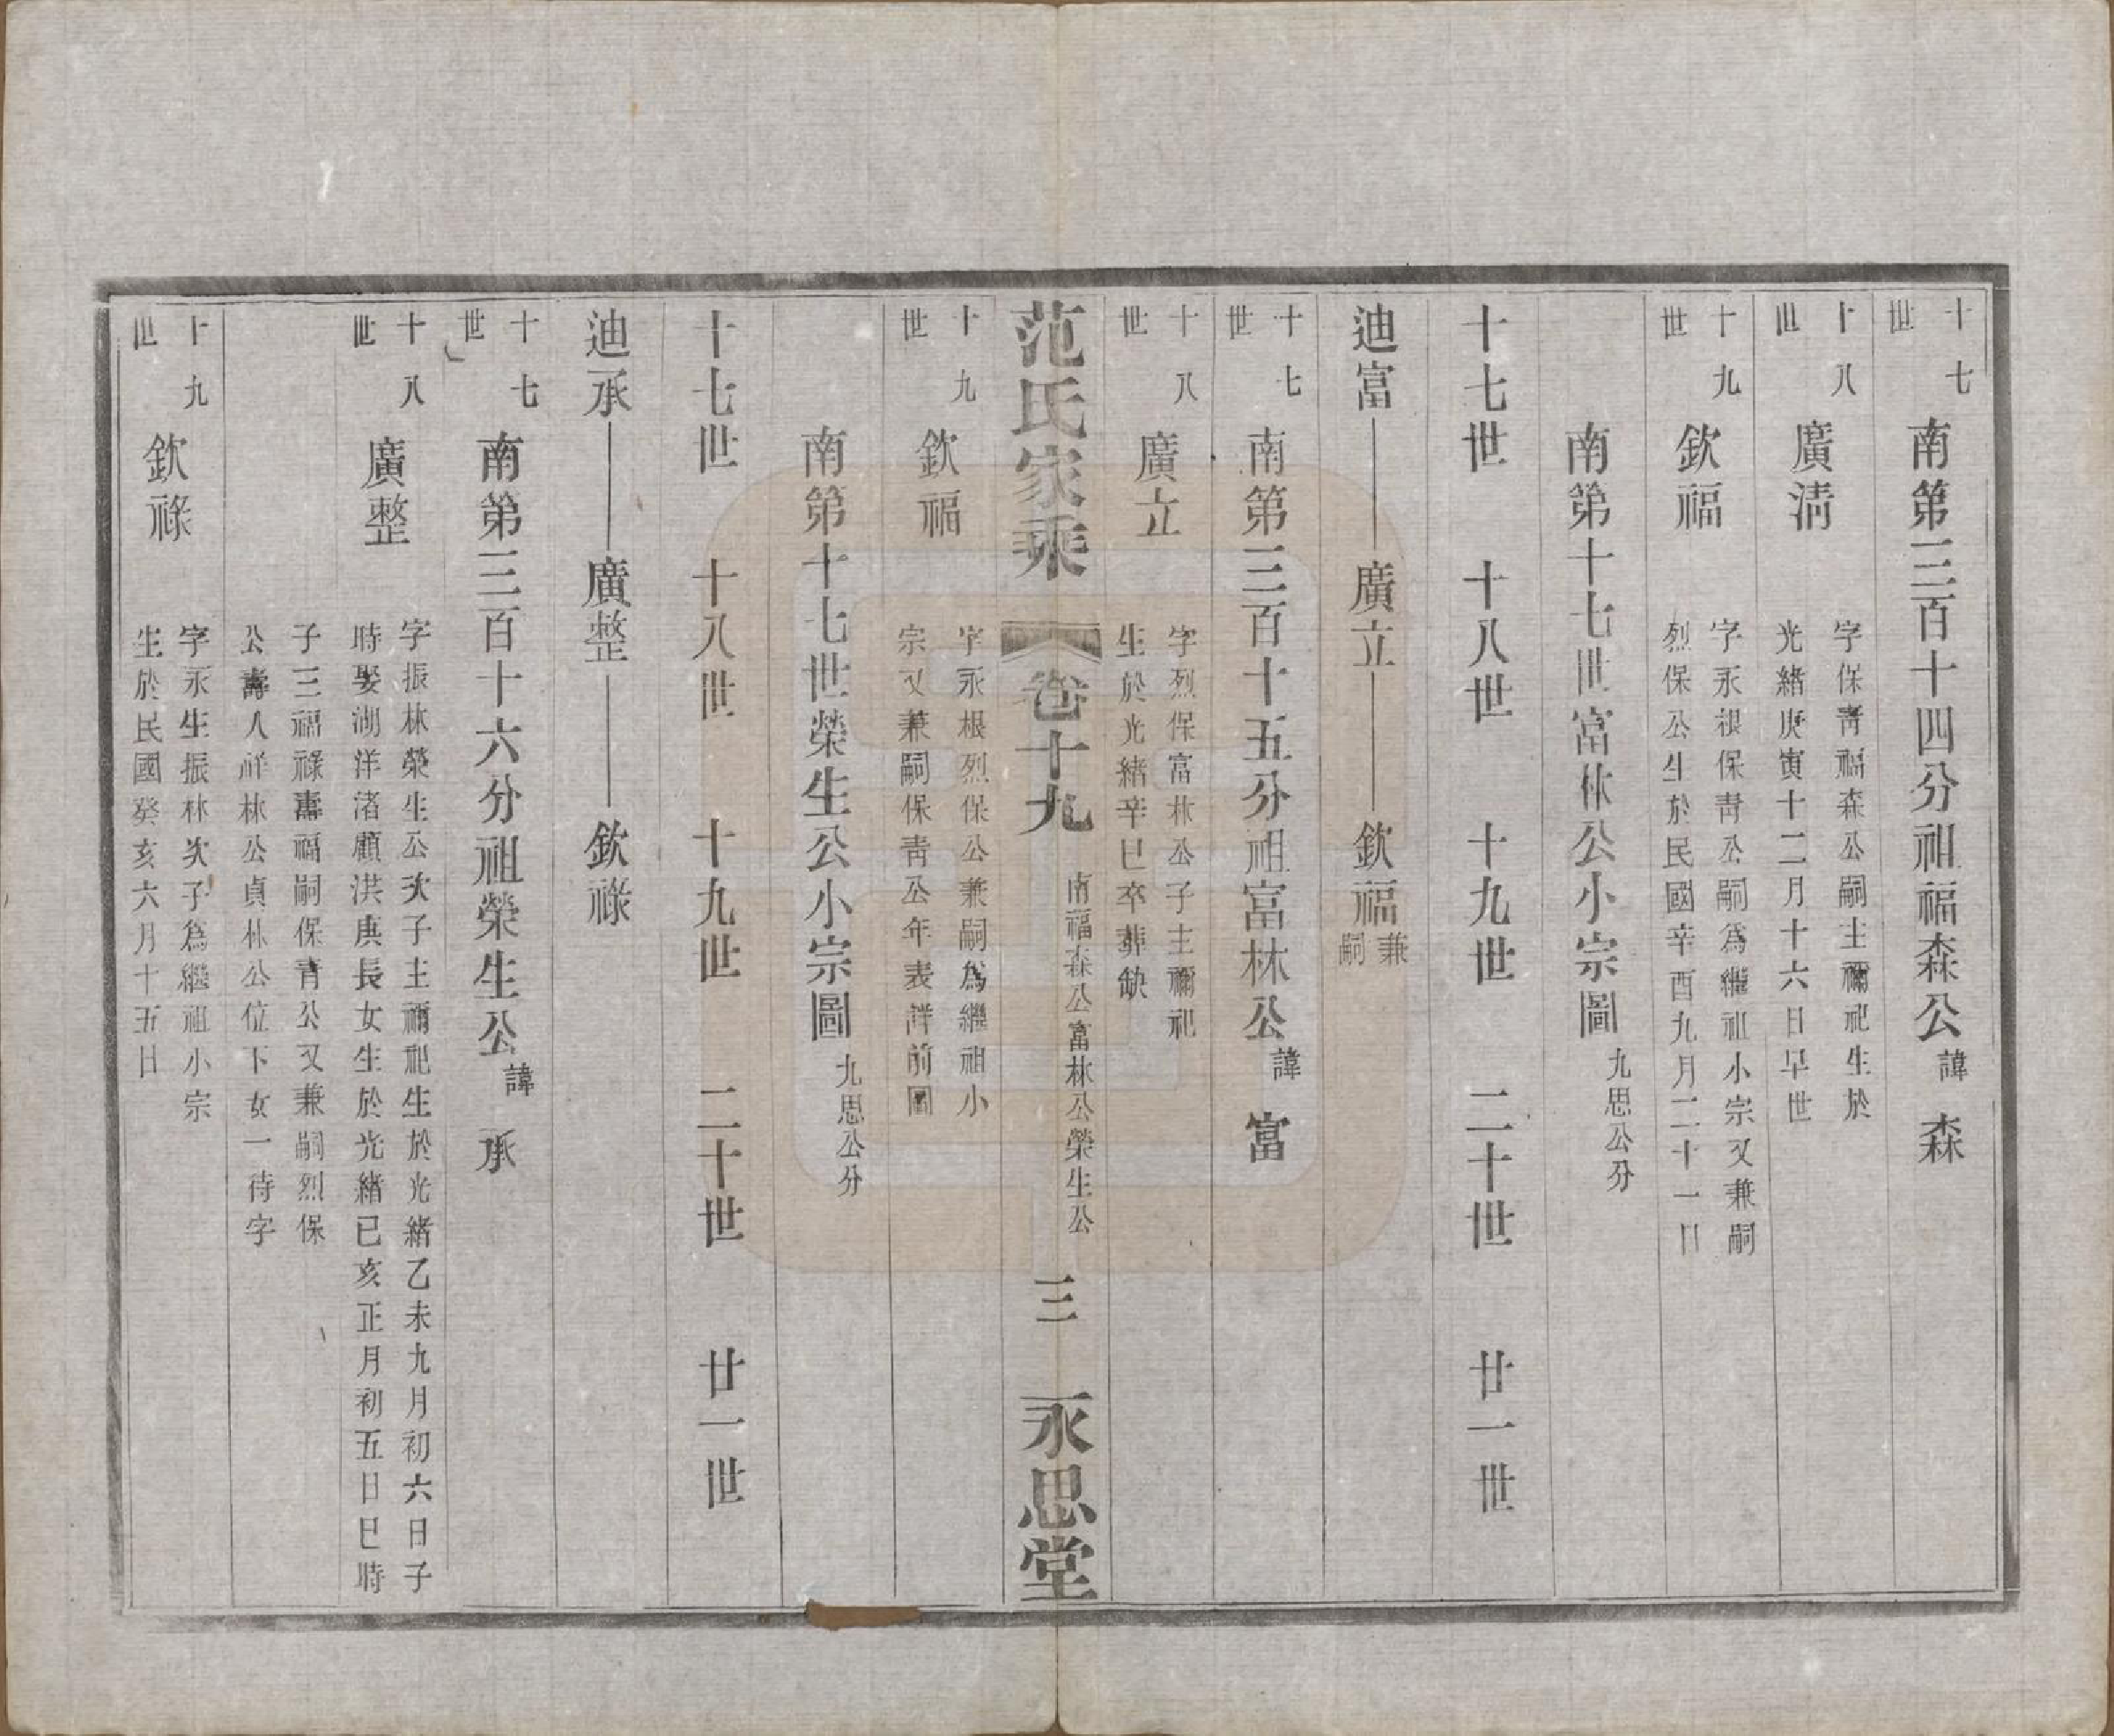 十七世　南第三百十四分祖福森公 諱 森
十八世　廣淸　字保靑福森公嗣主禰祀生於
光緒庚寅十二月十六日早世
十九世　欽福　字永根保靑公嗣爲繼祖小宗又兼嗣
烈保公生於民國辛酉九月二十一日
南第十七世富林公小宗圖 九思公分
十七世　十八世　十九世　二十世　廿一世
迪富——廣立——欽福 兼嗣
十七世　南第三百十五分祖富林公 諱 富
十八世　廣立　字烈保富林公子主禰祀
生於光緒辛巳卒葬缺
范氏家乘　卷十九　南福森公富林公榮生公　三　永思堂
十九世　欽福　字永根烈保公兼嗣爲繼祖小
宗又兼嗣保靑公年表詳前圖
南第十七世榮生公小宗圖 九思公分
十七世　十八世　十九世　二十世　廿一世
迪承——廣整——欽祿
十七世　南第三百十六分祖榮生公 諱 承
十八世　廣整　字振林榮生公次子主禰祀生於光緒乙未九月初六日子
時娶湖洋渚顧洪庚長女生於光緒己亥正月初五日巳時
子三福祿壽福嗣保靑公又兼嗣烈保
公壽入祥林公貞林公位下女一待字
十九世　欽祿　字永生振林次子爲繼祖小宗
生於民國癸亥六月十五日